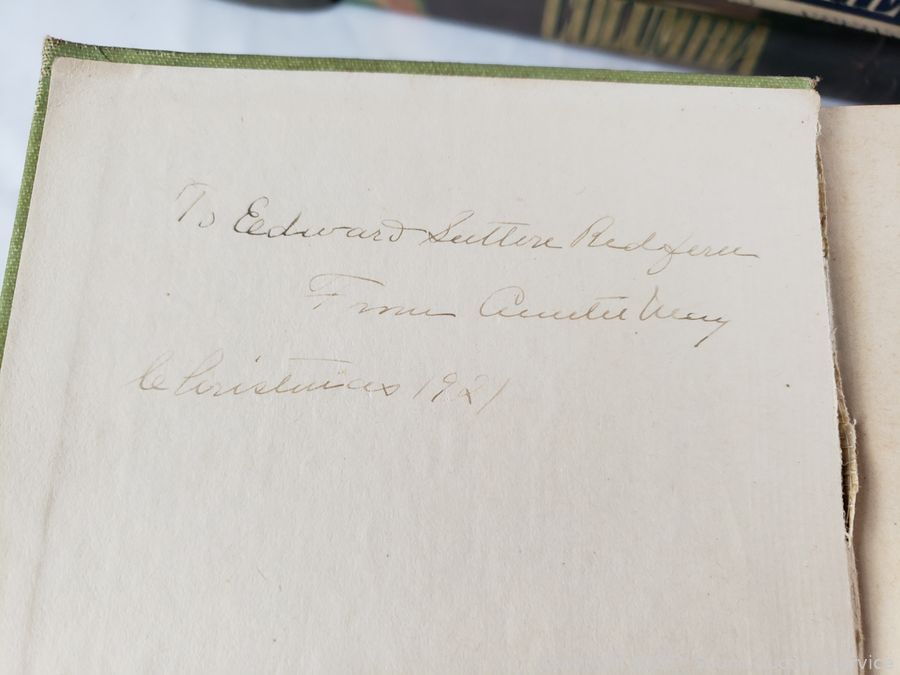 COLUMBIA
To Edward Sutton Redfern
From Auntie May
Christmas 1921